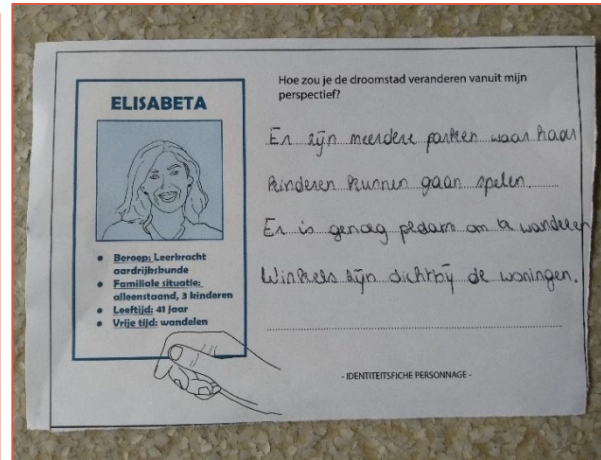 ELISABETA
Beroep: Leerkracht
aardrijkskunde
Familiale situatie:
alleenstaand, 3 kinderen
Leeftijd: 41 jaar
Vrije tijd: wandelen
Hoe zou je de droomstad veranderen vanuit mijn
perspectief?
Er zijn meerdere parken waar haar
kinderen kunnen gaan spelen.
Er is genoeg plaats om te wandelen
Winkels zijn dichtbij de woningen.
- IDENTITEITSFICHE PERSONNAGE -